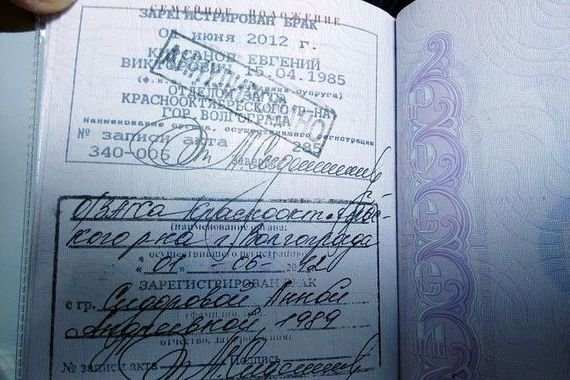 СЕМЕЙНОЕ ПОЛОЖЕНИЕ
ЗАРЕГИСТРИРОВАН БРАК
июня 2012 г.
ЕВГЕНИЙ
15.04.1985
супруга)
ОТДЕЛОМ ЗАГСА
КРАСНООКТЯБРЬСКОГО Р-НА
ГОР. ВОЛГОГРАДА
Наименование органа, осуществившего регистрацию
№ записи акта 285
340-006
ОЗАГСа Краснооктябрьс-
кого р-на г. Волгограда
(наименование органа,
осуществившего регистрацию)
«01» 06 2012
ЗАРЕГИСТРИРОВАН БРАК
с гр. Сидоровой Анной
Андреевной, 1989
№ записи акта Подпись